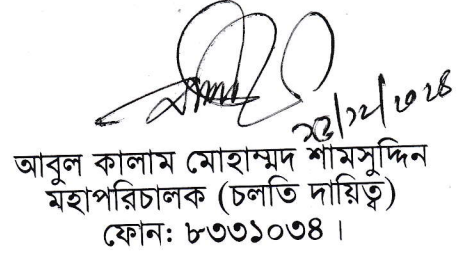 আবুল কালাম মোহাম্মদ শামসুদ্দিন
মহাপরিচালক (চলতি দায়িত্ব)
ফোন: ৮৩৩১০৩৪ ।